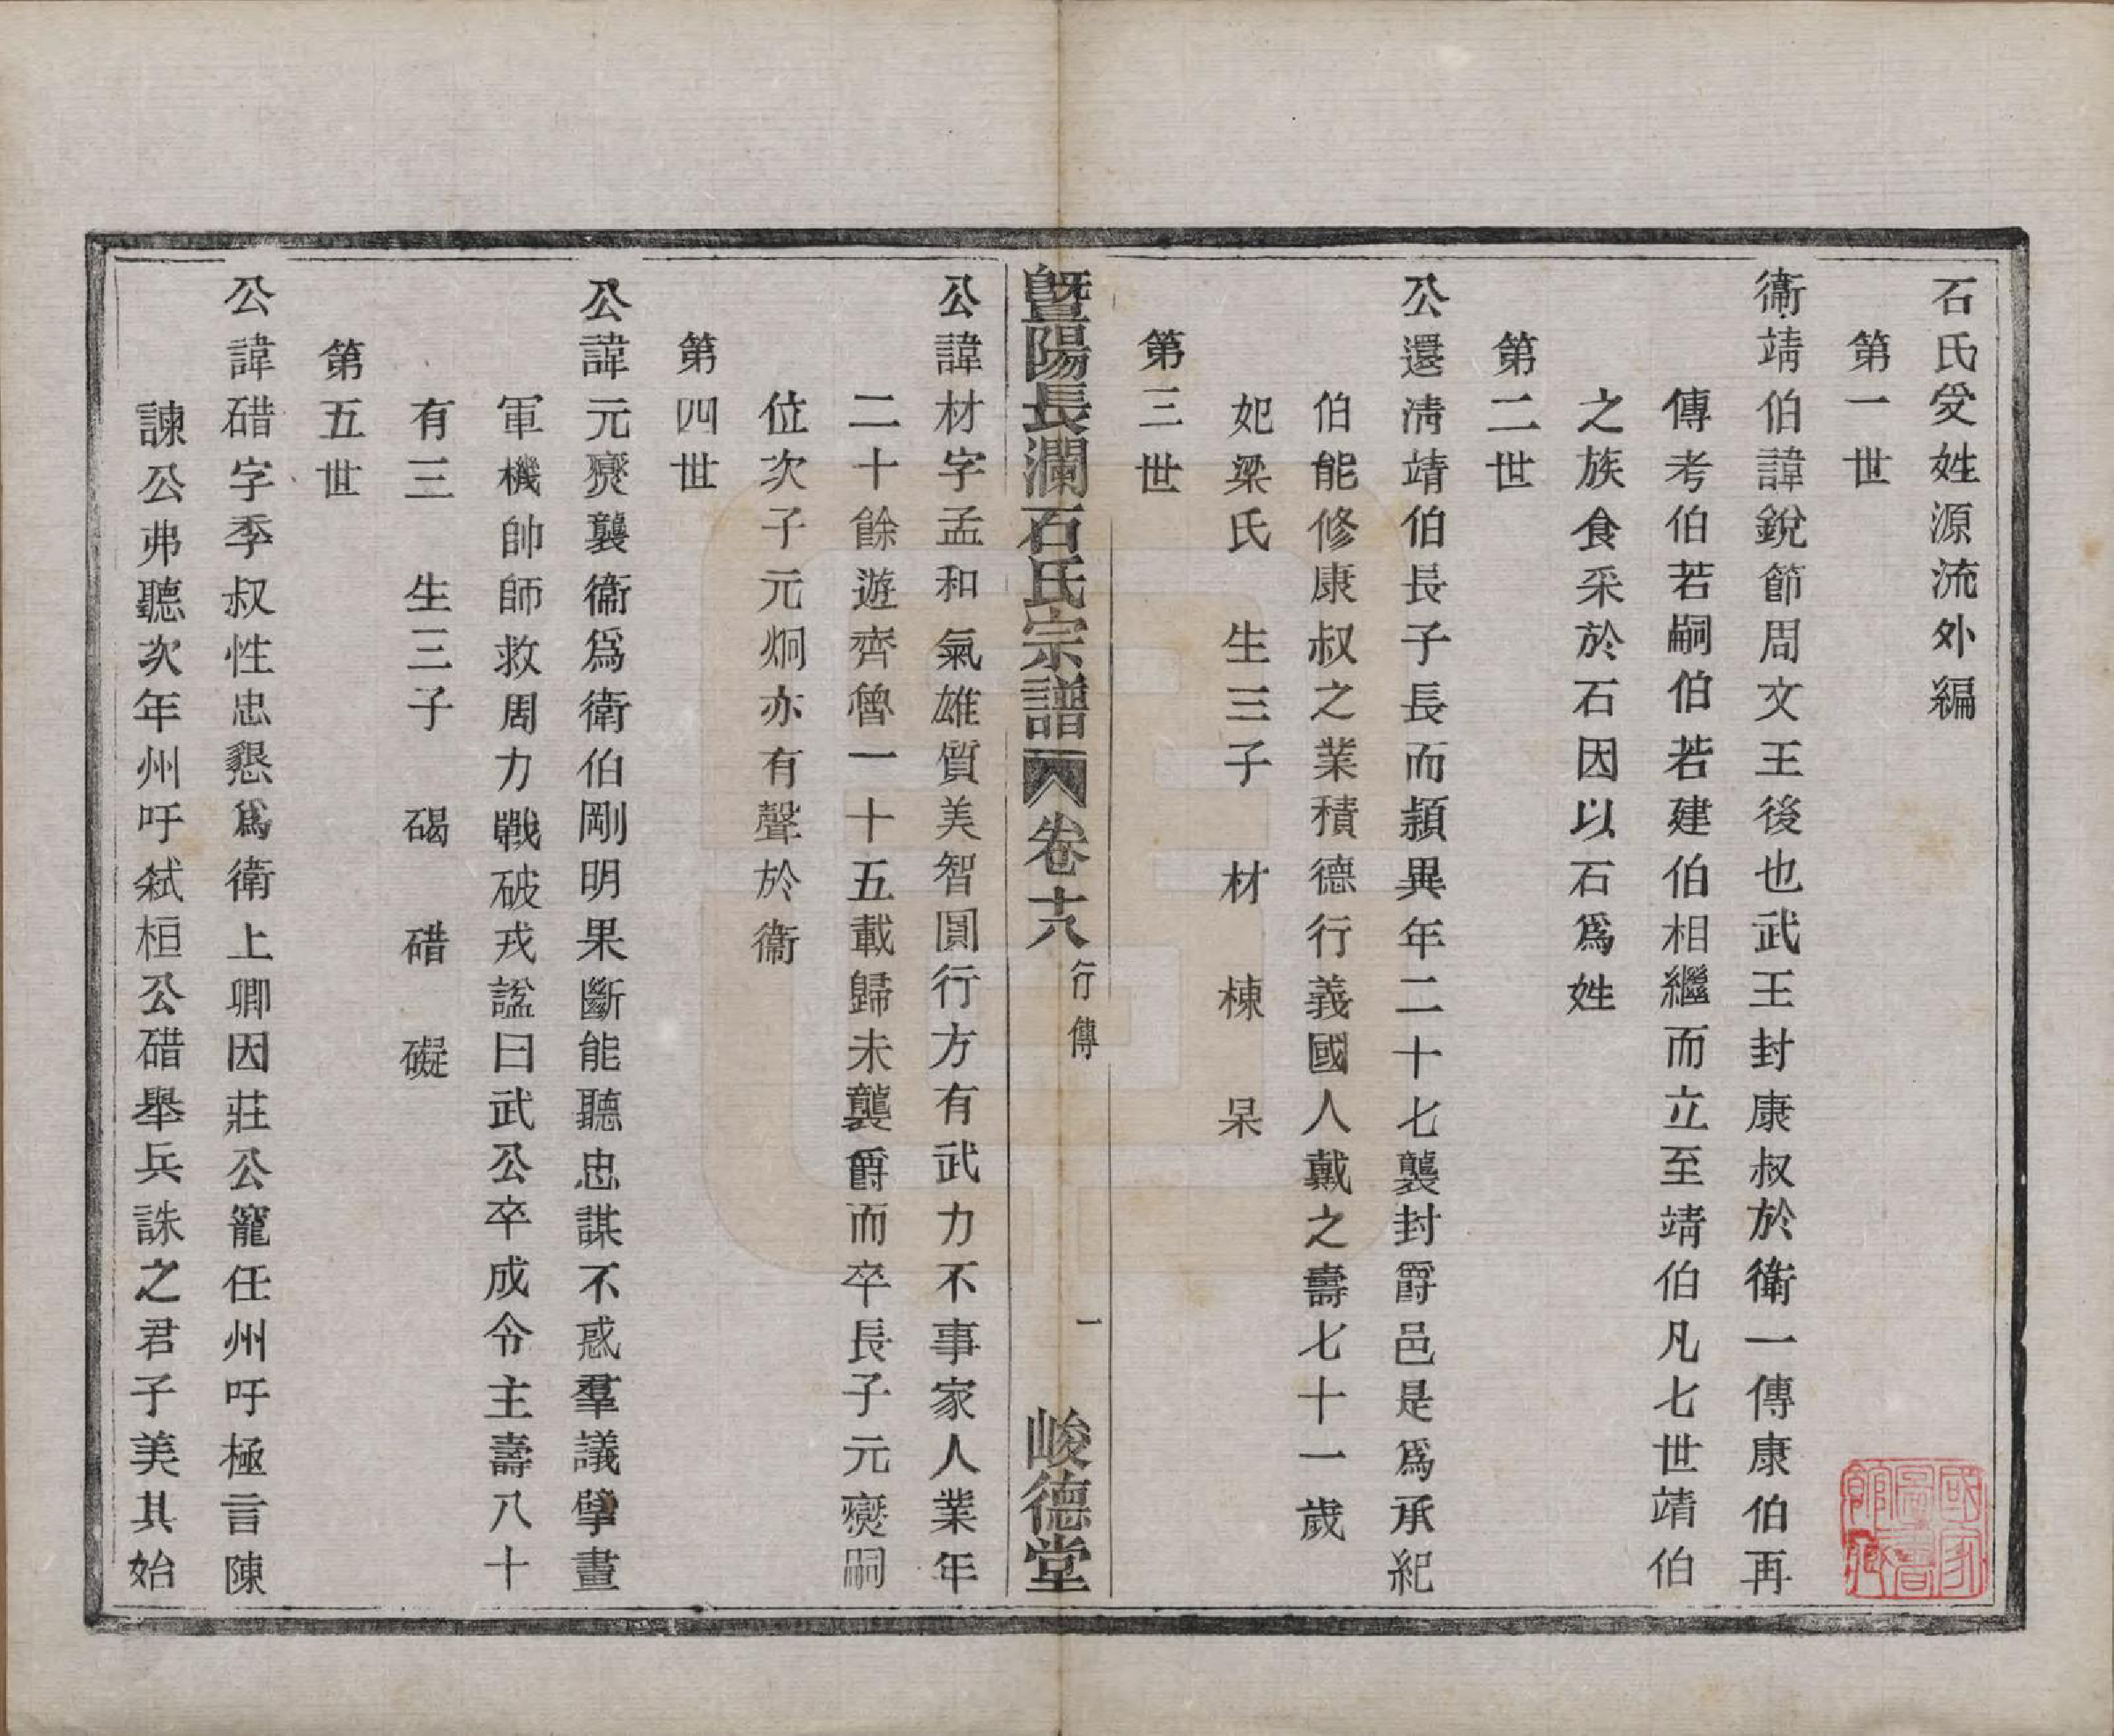 石氏受姓源流外編
第一世
衞靖伯諱銳節周文王後也武王封康叔於衛一傳康伯再
傳考伯若嗣伯若建伯相繼而立至靖伯凡七世靖伯
之族食采於石因以石爲姓
第二世
公還淸靖伯長子長而頴異年二十七襲封爵邑是爲承紀
伯能修康叔之業積德行義國人戴之壽七十一歲
妃梁氏 生三子 材 棟 杲
第三世
暨陽長瀾石氏宗譜 卷十八 行傳 一 峻德堂
公諱材字孟和氣雄質美智圓行方有武力不事家人業年
二十餘遊齊魯一十五載歸未襲爵而卒長子元爕嗣
位次子元炯亦有聲於衞
第四世
公諱元爕襲衞爲衛伯剛明果斷能聽忠謀不惑羣議擘畫
軍機帥師救周力戰破戎諡曰武公卒成令主壽八十
有三 生三子 碣 碏 礙
第五世
公諱碏字季叔性忠懇爲衛上卿因莊公寵任州吁極言陳
諫公弗聽次年州吁弑桓公碏舉兵誅之君子美其始
國家圖書館藏